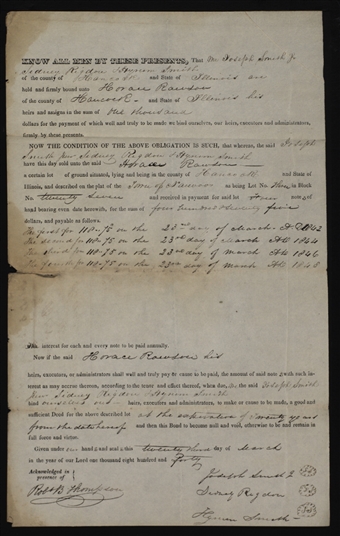 KNOW ALL MEN BY THESE PRESENTS, That We Joseph Smith Jr
Sidney Rigdon & Hyrum Smith
of the county of Hancock and State of Illinois are
held and firmly bound unto Horace Rawson
of the county of Hancock and State of Illinois his
heirs and assigns in the sum of One thousand
dollars for the payment of which well and truly to be made we bind ourselves, our heirs, executors and administrators,
firmly by these presents.
NOW THE CONDITION OF THE ABOVE OBLIGATION IS SUCH, that whereas, the said Joseph
Smith Junr Sidney Rigdon & Hyrum Smith
have this day sold unto the said Horace Rawson
a certain lot of ground situated, lying and being in the county of Hancock and State of
Illinois, and described on the plat of the Town of Nauvoo as being Lot No. in Block
No. twenty seven and received in payment for said lot four notes of
hand bearing even date herewith, for the sum of four hundred & seventy five
dollars, and payable as follows
The first for 118-75 on the 23rd day of March AD 1842
The second for 118-75 on the 23rd day of March AD 1844
The third for 118-75 on the 23rd day of March AD 1846
The fourth for 118-75 on the 23rd day of March AD 1848
The interest for each and every note to be paid annually.
Now if the said Horace Rawson his
heirs, executors, or administrators shall well and truly pay or cause to be paid, the amount of said notes with such in-
terest as may accrue thereon, according to the tenor and effect thereof, when due, the said Joseph Smith
Junr Sidney Rigdon & Hyrum Smith
bind ourselves and our heirs, executors and administrators, to make or cause to be made, a good and
sufficient Deed for the above described lot at the expiration of twenty years
from the date hereof and then this Bond to become null and void, otherwise to be and remain in
full force and virtue.
Given under our hands and seals this twenty third day of March
in the year of our Lord one thousand eight hundred and Forty
Acknowledged in
presence of
Robt B Thompson
Joseph Smith Jr
Sidney Rigdon
Hyrum Smith